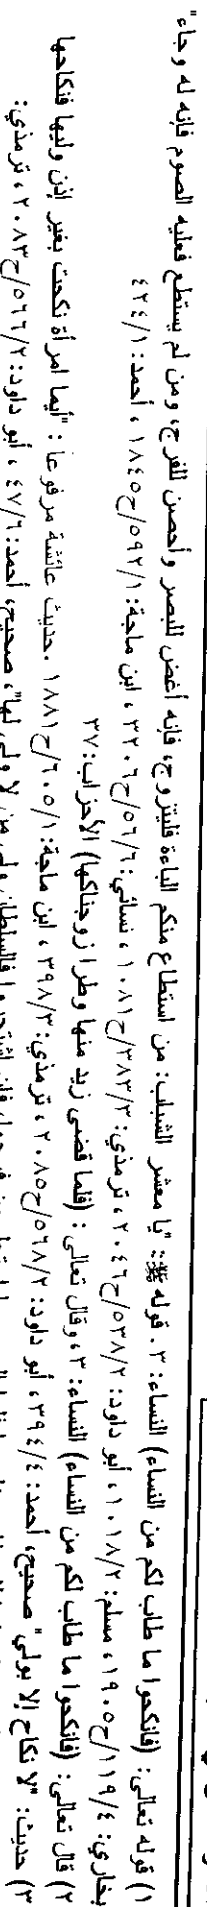 ١) قوله تعالى: (فانكحوا ما طاب لكم من النساء) النساء: ٣. قوله ﷺ: "يا معشر الشباب: من استطاع منكم الباءة فليتزوج، فإنه أغض للبصر وأحصن للفرج، ومن لم يستطع فعليه الصوم فإنه له وجاء"
بخاري: ٤/١١٩/ح١٩٠٥، مسلم: ٢/١٠١٨، أبو داود: ٢/٥٣٨/ح٢٠٤٦، ترمذي: ٣/٣٨٣/ح١٠٨١، نسائي: ٦/٥٦/ح٣٢٠٦، ابن ماجة: ١/٥٩٢/ح١٨٤٥، أحمد: ١/٤٢٤
٢) قال تعالى: (فانكحوا ما طاب لكم من النساء) النساء: ٣، وقال تعالى: (فلما قضى زيد منها وطرا زوجناكها) الأحزاب: ٣٧
٣) حديث: "لا نكاح إلا بولي" صحيح، أحمد: ٤/٣٩٤، أبو داود: ٢/٥٦٨/ح٢٠٨٥، ترمذي: ٣/٣٩٨، ابن ماجة: ١/٦٠٥/ح١٨٨١. حديث عائشة مرفوعا: "أيما امرأة نكحت بغير إذن وليها فنكاحها
فإن اشتجروا فالسلطان ولي من لا ولي لها"، صحيح، أحمد: ٦/٤٧، أبو داود: ٢/٥٦٦/ح٢٠٨٣، ترمذي: